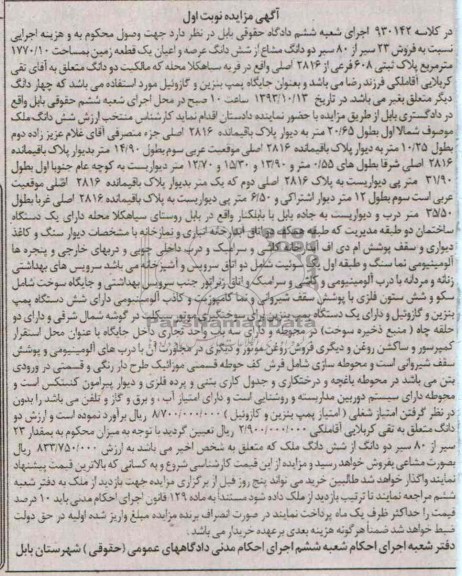 آگهی مزایده نوبت اول
در کلاسه ۹۳۰۱۴۲ اجرای شعبه ششم دادگاه حقوقی بابل در نظر دارد جهت وصول محکوم به و هزینه اجرایی
نسبت به فروش ۲۳ سیر از ۸۰ سیر دو دانگ مشاع از شش دانگ عرصه و اعیان یک قطعه زمین بمساحت ۱۷۷۰/۱۰
مترمربع پلاک ثبتی ۶۰۸ فرعی از ۲۸۱۶ اصلی واقع در قریه سیاهکلا محله که مالکیت دو دانگ متعلق به آقای تقی
کربلایی آقاملکی فرزند رضا می باشد و بعنوان جایگاه پمپ بنزین و گازوئیل مورد استفاده می باشد که چهار دانگ
دیگر متعلق بغیر می باشد. در تاریخ ۱۳۹۳/۱۰/۱۳ ساعت ۱۰ صبح در محل اجرای شعبه ششم حقوقی بابل واقع
در دادگستری بابل از طریق مزایده با حضور نماینده دادستان اقدام نماید کارشناس منتخب ارزش شش دانگ ملک
موصوف شمالا اول بطول ۲۰/۶۵ متر به دیوار پلاک باقیمانده ۲۸۱۶ اصلی جزء منصرفی آقای غلام عزیز زاده دوم
بطول ۱۰/۲۵ متر به دیوار پلاک باقیمانده ۲۸۱۶ اصلی موقعیت غربی سوم بطول ۱۴/۹۰ متر بدیوار پلاک باقیمانده
۲۸۱۶ اصلی شرقا بطول های ۰/۵۵ متر و ۱۳/۹۰ و ۱۵/۳۰ و ۱۲/۷۰ متر دیواریست به کوچه عام جنوبا اول بطول
۳۱/۹۰ متر پی دیواریست به پلاک ۲۸۱۶ اصلی دوم که یک متر بدیوار پلاک باقیمانده ۲۸۱۶ اصلی موقعیت
غربی است سوم بطول ۱۲ متر دیوار اشتراکی و ۶/۵۰ متر پی دیواریست به پلاک باقیمانده ۲۸۱۶ اصلی غربا بطول
۳۵/۵۰ متر درب و دیواریست به جاده بابل با بابلکنار واقع در بابل روستای سیاهکلا محله دارای یک دستگاه
ساختمان دو طبقه مدیریت که طبقه همکف دو اتاق آبدارخانه انباری و نمازخانه با مشخصات دیوار سنگ و کاغذ
دیواری و سقف پوشش ام دی اف آبدارخانه کاشی و سرامیک و درب داخلی چوبی و دربهای خارجی و پنجره ها
آلومینیومی نما سنگ و طبقه اول یک سوئیت شامل دو اتاق سرویس و آشپزخانه می باشد سرویس های بهداشتی
زنانه و مردانه با درب آلومینیومی و کاشی و سرامیک و اتاق ژنراتور جنب سرویس بهداشتی و جایگاه سوخت شامل
سکو و شش ستون فلزی با پوشش سقف شیروانی و نما کامپوزیت و کاذب آلومینیومی دارای شش دستگاه پمپ
بنزین و گازوئیل و دارای یک دستگاه پمپ بنزین برای سوختگیری موتور سیکلت در گوشه شمال شرقی و دارای دو
حلقه چاه (منبع ذخیره سوخت) در محوطه و دارای سه واحد تجاری داخل جایگاه با عنوان محل استقرار
کمپرسور و ساکشن روغن و دیگری فروش روغن موتور و دیگری در مجاورت آن با درب های آلومینیومی و پوشش
سقف شیروانی است و محوطه سازی شامل فرش کف حوطه قسمتی موزائیک طرح دار رنگی و قسمتی در ورودی
بتن می باشد در محوطه باغچه و درختکاری و جدول کاری بتنی و پرده فلزی و دیوار پیرامون کنستکس است و
محوطه دارای سیستم دوربین مداربسته و روشنایی است و دارای امتیاز آب، و برق و گاز و تلفن می باشد را بدون
در نظر گرفتن امتیاز شغلی (امتیاز پمپ بنزین و گازوئیل) ۸/۷۰۰/۰۰۰/۰۰۰ ریال برآورد نموده است و ارزش دو
دانگ متعلق به تقی کربلایی آقاملکی ۲/۹۰۰/۰۰۰/۰۰۰ ریال تعیین گردید با توجه به میزان محکوم به بمقدار ۲۳
سیر از ۸۰ سیر دو دانگ از شش دانگ ملک که متعلق به شخص اخیر می باشد به ارزش ۸۳۳/۷۵۰/۰۰۰ ریال
بصورت مشاعی بفروش خواهد رسید و مزایده از این قیمت کارشناسی شروع و به کسانی که بالاترین قیمت پیشنهاد
نمایند واگذار خواهد شد طالبین خرید می تواند پنج روز قبل از برگزاری مزایده جهت بازدید از ملک به دفتر شعبه
ششم مراجعه نمایند تا ترتیب بازدید از ملک داده شود مستندا به ماده ۱۲۹ قانون اجرای احکام مدنی باید ۱۰ درصد
قیمت را حداکثر ظرف یک ماه پرداخت نمایند در صورت انصراف برنده مزایده مبلغ واریز شده اولیه در حق دولت
ضبط خواهد شد ضمنا هر گونه هزینه بعدی بر عهده خریدار می باشد.
دفتر شعبه اجرای احکام شعبه ششم اجرای احکام مدنی دادگاههای عمومی (حقوقی) شهرستان بابل